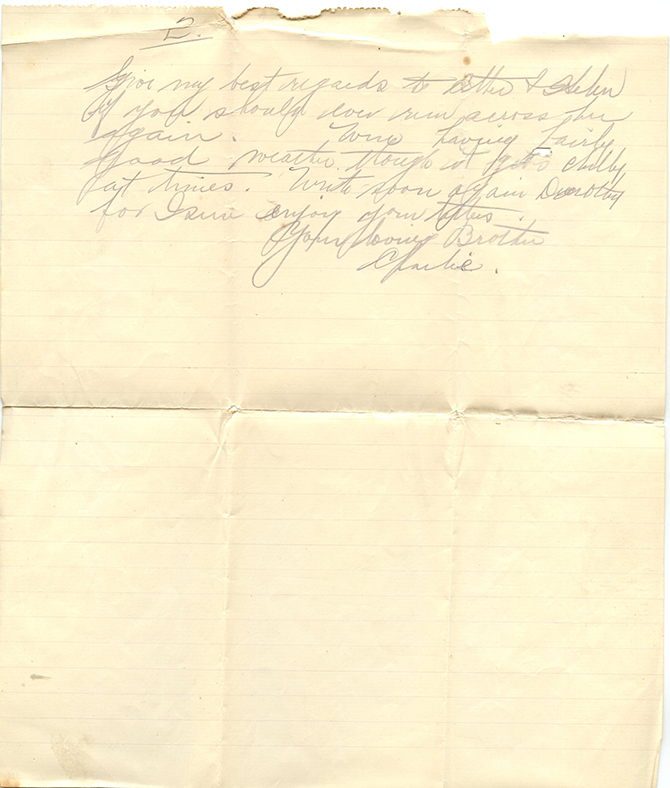 2.
Give my best regards to Esther & Helen
if you should ever run across her
again. We're having fairly
good weather though it gets chilly
at times. Write soon again Dorothy
for I sure enjoy your letters.
Your loving Brother
Charlie.